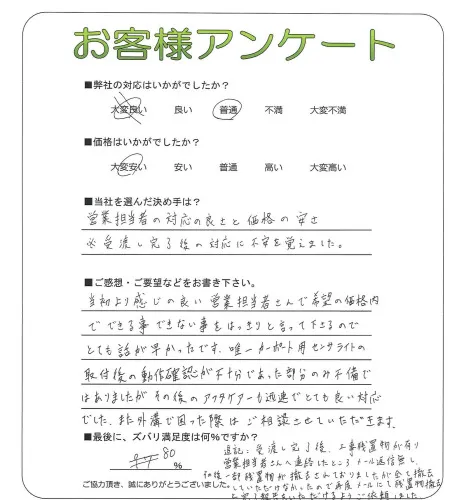 お客様アンケート
■弊社の対応はいかがでしたか？
大変良い 良い 普通 不満 大変不満
■価格はいかがでしたか？
大変安い 安い 普通 高い 大変高い
■当社を選んだ決め手は？
営業担当者の対応の良さと価格の安さ
※受渡し完了後の対応に不安を覚えました。
■ご感想・ご要望などをお書き下さい。
当初より感じの良い営業担当者さんで希望の価格内
でできる事できない事をはっきりと言って下さるので
とても話が早かったです。唯一カーポート用センサライトの
取付後の動作確認が不十分であった部分のみ不備で
はありましたがその後のアフタケアーも迅速でとても良い対応
でした。また外溝で困った際はご相談させていただきます。
■最後に、ズバリ満足度は何%ですか？
80
%
ご協力頂き、誠にありがとうございました。
追記：受渡し完了後、工事残置物が有り
営業担当者さんへ連絡したところメール返信無し、
一部残置物が撤去されておりましたが全て撤去
していただけなかったので再度メールにて残置物撤去